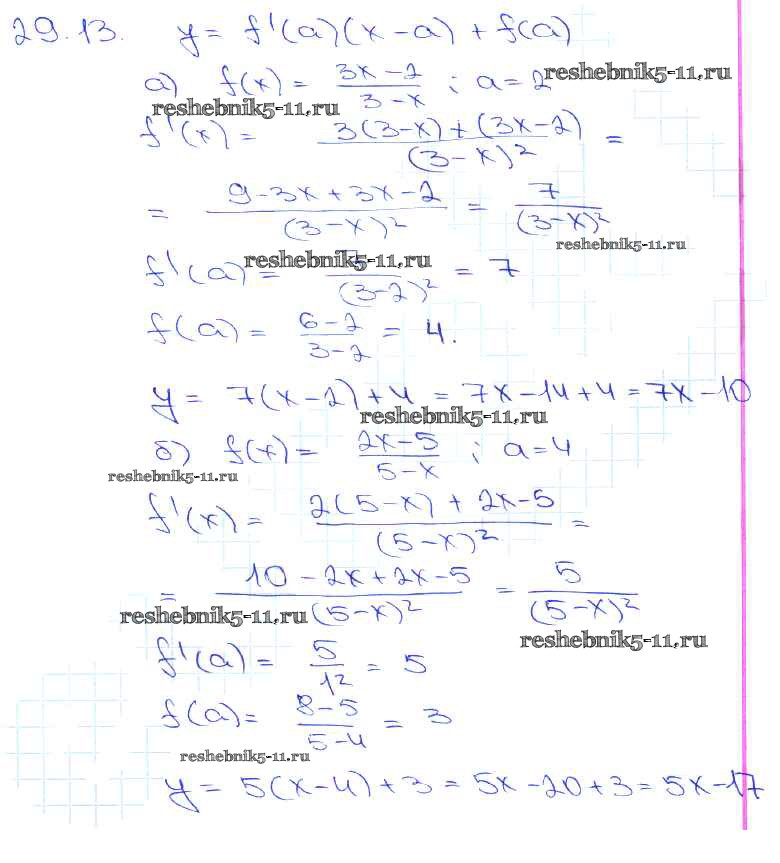 29.13. y = f'(a)(x-a) + f(a)
а) f(x) = (3x-2)/(3-x) ; a=2 reshebnik5-11.ru
reshebnik5-11.ru
f'(x) = (3(3-x)+(3x-2))/(3-x)² =
= (9-3x+3x-2)/(3-x)² = 7/(3-x)²
reshebnik5-11.ru
f'(a) = 7/(3-2)² = 7 reshebnik5-11.ru
f(a) = (6-2)/(3-2) = 4.
y = 7(x-2)+4 = 7x-14+4 = 7x-10
reshebnik5-11.ru
б) f(x) = (2x-5)/(5-x) ; a=4
reshebnik5-11.ru
f'(x) = (2(5-x) + 2x-5)/(5-x)² =
= (10-2x+2x-5)/(5-x)² = 5/(5-x)²
reshebnik5-11.ru
reshebnik5-11.ru
f'(a) = 5/1² = 5
f(a) = (8-5)/(5-4) = 3
reshebnik5-11.ru
y = 5(x-4)+3 = 5x-20+3 = 5x-17